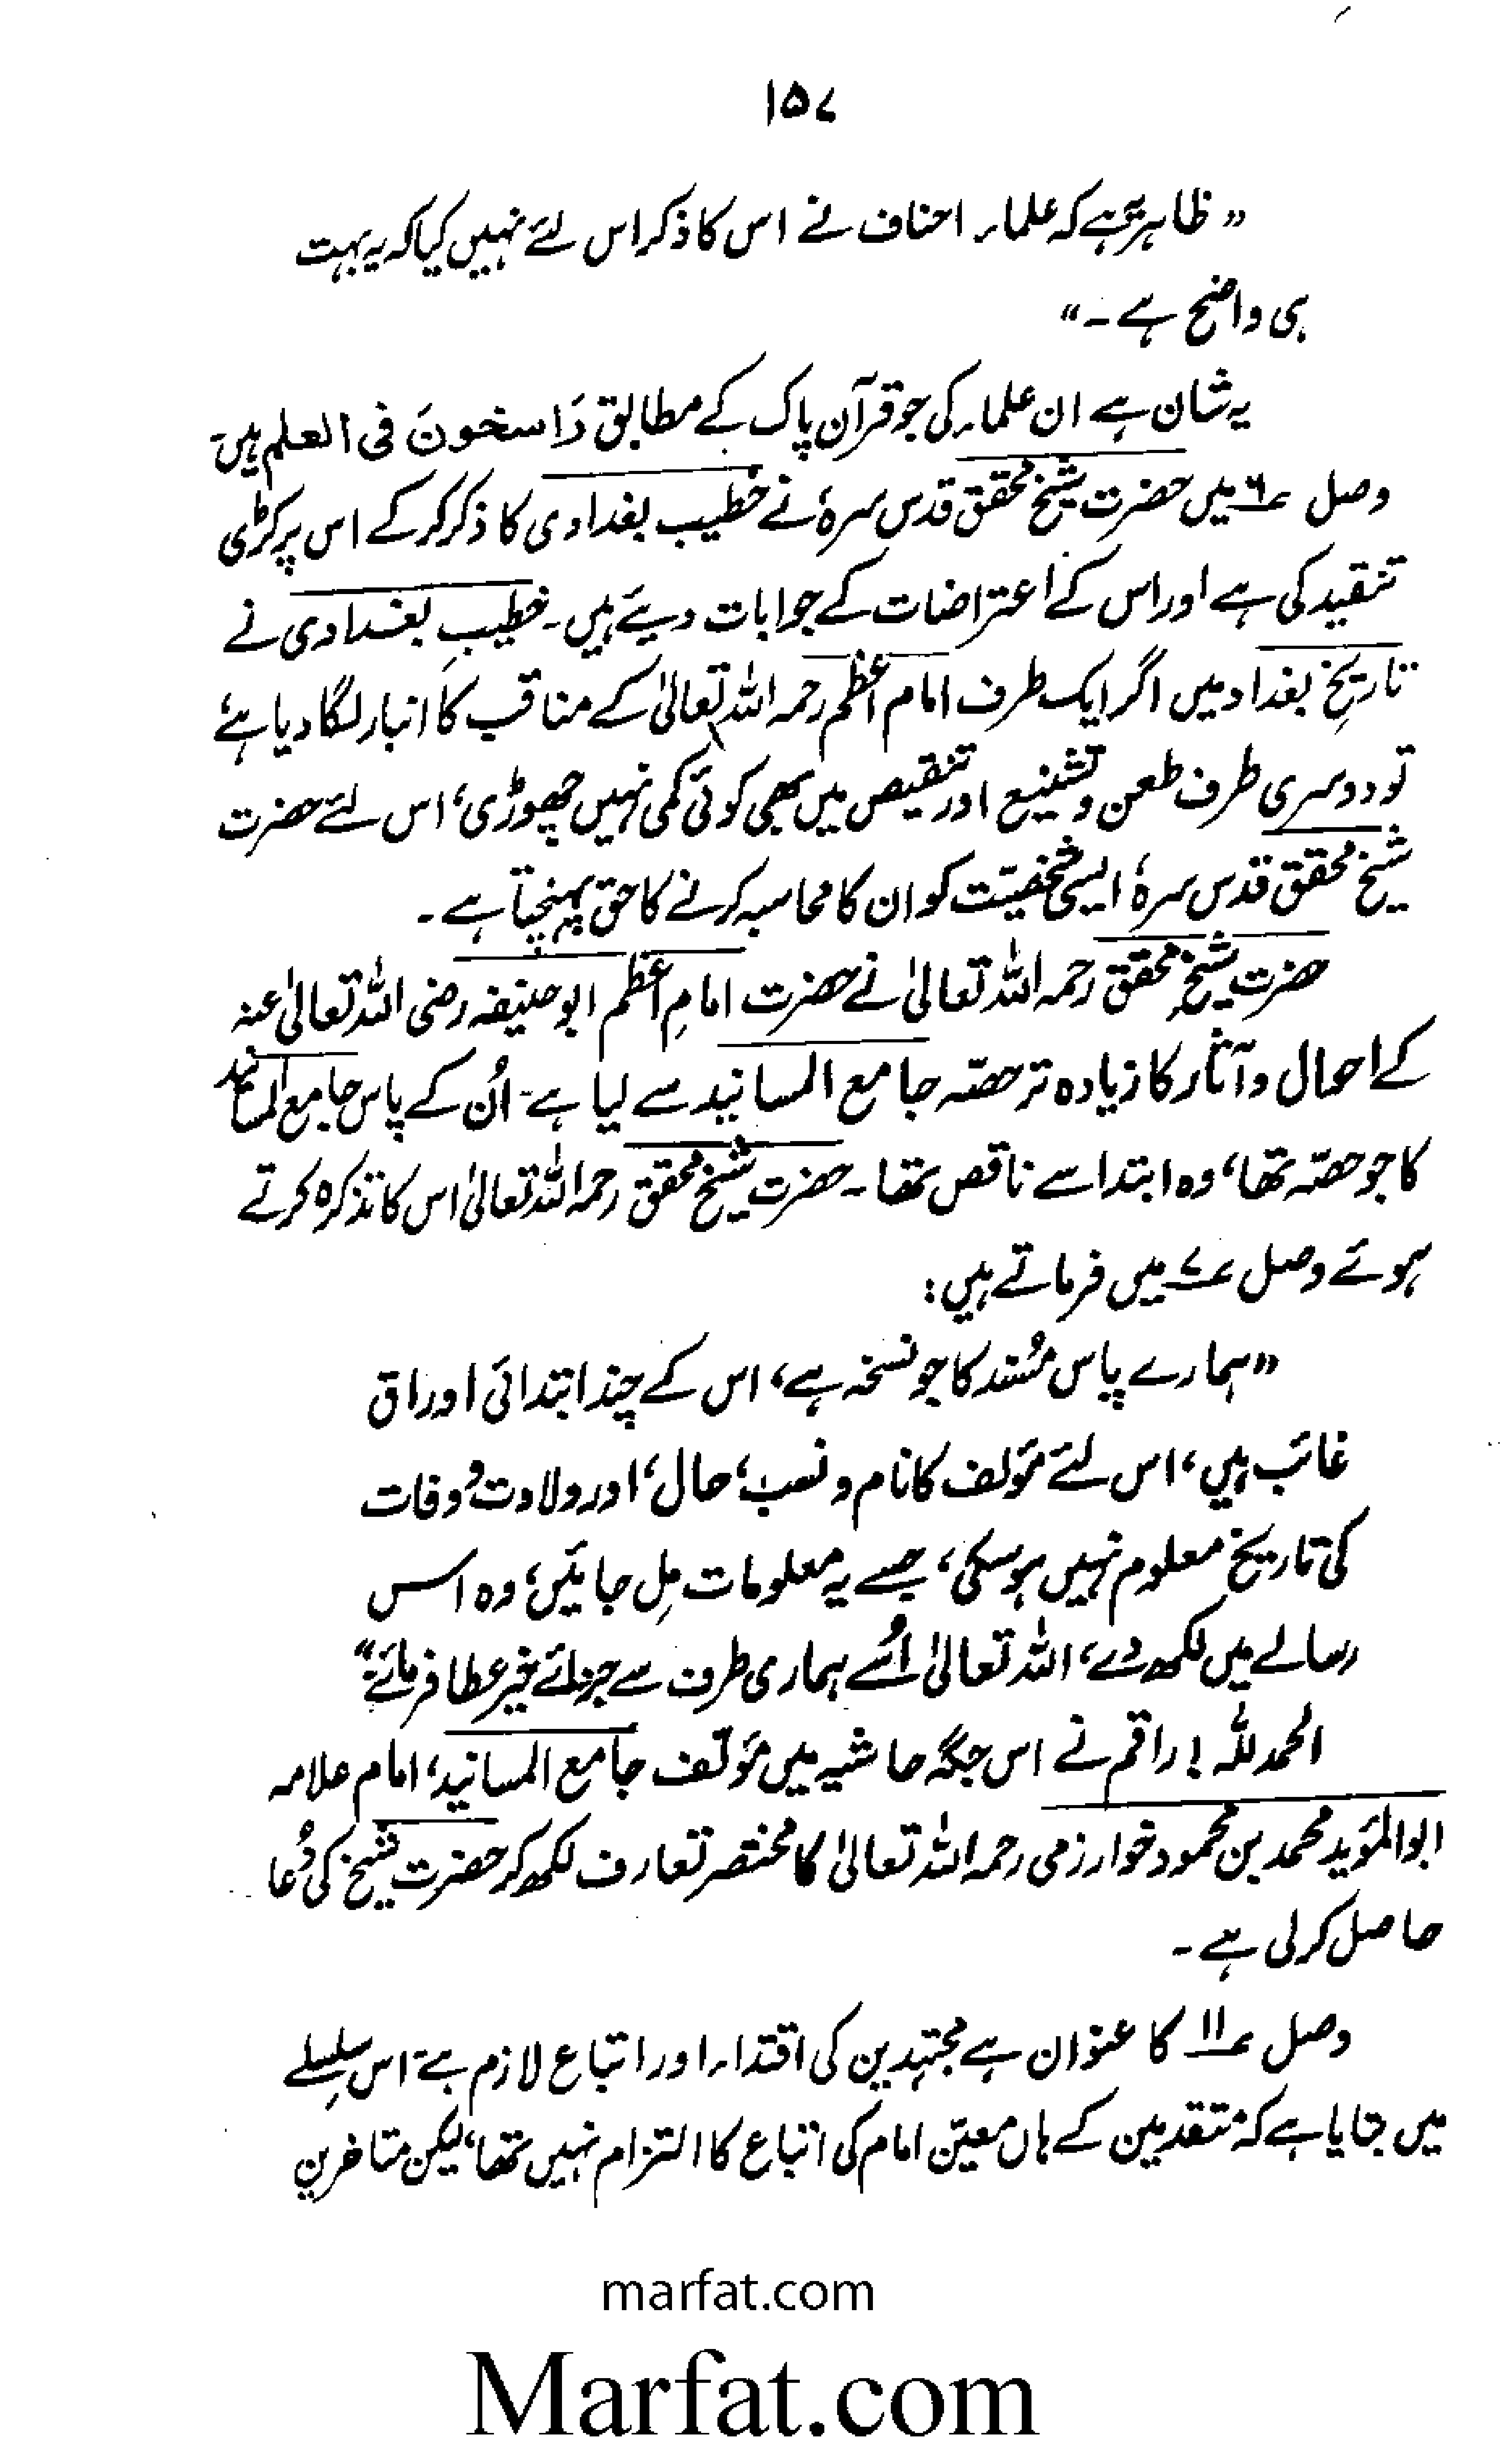 ۱۵۷
"ظاہر یہ ہے کہ علماء احناف نے اس کا ذکر اس لئے نہیں کیا کہ یہ بہت
ہی واضح ہے۔"
یہ شان ہے ان علماء کی جو قرآن پاک کے مطابق رَاسخونَ فی العلم ہیں۔
وصل ؏۶ میں حضرت شیخ محقق قدس سرہٗ نے خطیب بغدادی کا ذکر کر کے اس پر کڑی
تنقید کی ہے اور اس کے اعتراضات کے جوابات دیئے ہیں۔ خطیبِ بغدادی نے
تاریخِ بغداد میں اگر ایک طرف امام اعظم رحمہ اللہ تعالیٰ کے مناقب کا انبار لگا دیا ہے
تو دوسری طرف طعن و تشنیع اور تنقیص میں بھی کوئی کمی نہیں چھوڑی، اس لئے حضرت
شیخ محقق قدس سرہٗ ایسی شخصیّت کو ان کا محاسبہ کرنے کا حق پہنچتا ہے۔
حضرت شیخ محقق رحمہ اللہ تعالیٰ نے حضرت امامِ اعظم ابوحنیفہ رضی اللہ تعالیٰ عنہ
کے احوال و آثار کا زیادہ تر حصّہ جامع المسانید سے لیا ہے۔ اُن کے پاس جامع المسانید
کا جو حصّہ تھا، وہ ابتدا سے ناقص تھا۔ حضرت شیخ محقق رحمہ اللہ تعالیٰ اس کا تذکرہ کرتے
ہوئے وصل ؏۷ میں فرماتے ہیں:
"ہمارے پاس مُسند کا جو نسخہ ہے، اس کے چند ابتدائی اوراق
غائب ہیں، اس لئے مؤلف کا نام و نسب، حال، اور ولادت و وفات
کی تاریخ معلوم نہیں ہو سکی، جسے یہ معلومات مِل جائیں، وہ اس
رسالے میں لکھ دے، اللہ تعالیٰ اُسے ہماری طرف سے جزائے خیر عطا فرمائے"
الحمد للہ! راقم نے اس جگہ حاشیہ میں مؤلّف جامع المسانید، امام علامہ
ابوالمؤید محمد بن محمود خوارزمی رحمہ اللہ تعالیٰ کا مختصر تعارف لکھ کر حضرت شیخ کی دُعا
حاصل کر لی ہے۔
وصل ؏۱۱ کا عنوان ہے مجتہدین کی اقتداء اور اتباع لازم ہے۔ اس سلسلے
میں بتایا ہے کہ متقدمین کے ہاں معیّن امام کی اتباع کا التزام نہیں تھا، لیکن متاخرین
marfat.com
Marfat.com